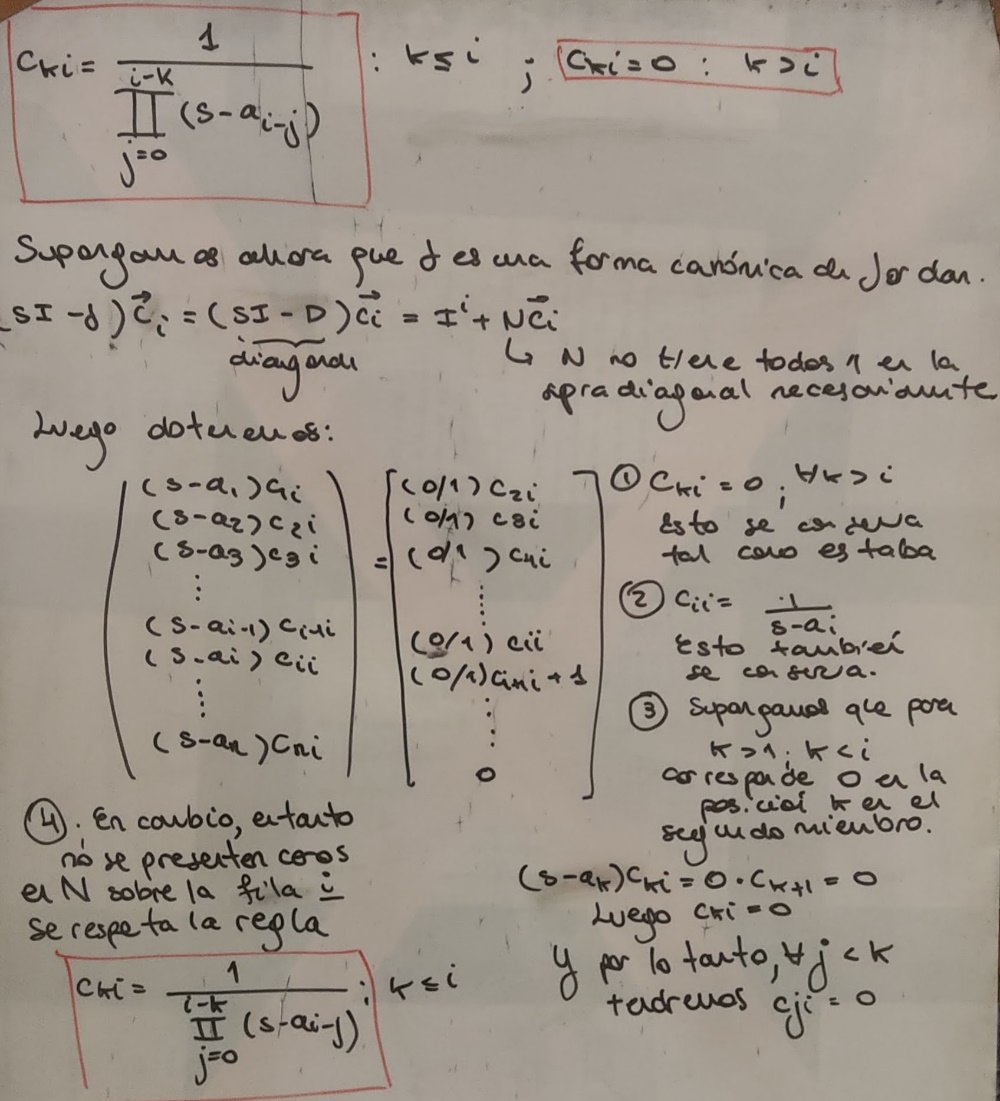 C_{ki} = \frac{1}{\prod_{j=0}^{i-k} (s-a_{i-j})} : k ≤ i ; C_{ki} = 0 : k > i
Supongamos ahora que J es una forma canónica de Jordan.
(SI - J) \vec{C}_i = (SI - D) \vec{C}_i = I^i + N\vec{C}_i
diagonal
↳ N no tiene todos 1 en la
supradiagonal necesariamente
Luego obtenemos:
(s-a_1)c_{1i}
(s-a_2)c_{2i}
(s-a_3)c_{3i}
⋮
(s-a_{i-1})c_{i-1i}
(s-a_i)c_{ii}
⋮
(s-a_n)c_{ni}
=
(0/1) c_{2i}
(0/1) c_{3i}
(0/1) c_{4i}
⋮
(0/1) c_{ii}
(0/1) c_{i+1i} + 1
⋮
0
① C_{ki} = 0 ; ∀k > i
Esto se conserva
tal como estaba
② C_{ii} = \frac{1}{s-a_i}
Esto también
se conserva.
③ Supongamos que para
k > 1 ; k < i
corresponde 0 en la
posición k en el
segundo miembro.
(s-a_k)C_{ki} = 0 · C_{k+1} = 0
Luego C_{ki} = 0
Y por lo tanto, ∀j < k
tendremos c_{ji} = 0
④. En cambio, en tanto
no se presenten ceros
en N sobre la fila i
se respeta la regla
C_{ki} = \frac{1}{\prod_{j=0}^{i-k} (s-a_{i-j})} ; k ≤ i